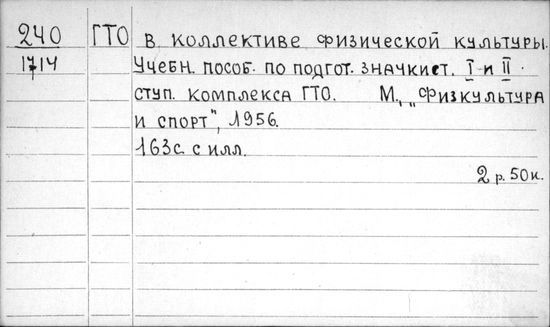 240 ГТО в коллективе физической культуры.
1714 Учебн. пособ. по подгот. значкист. I и II
ступ. комплекса ГТО. М., „Физкультура
и спорт", 1956.
163с. с илл.
2 р. 50к.